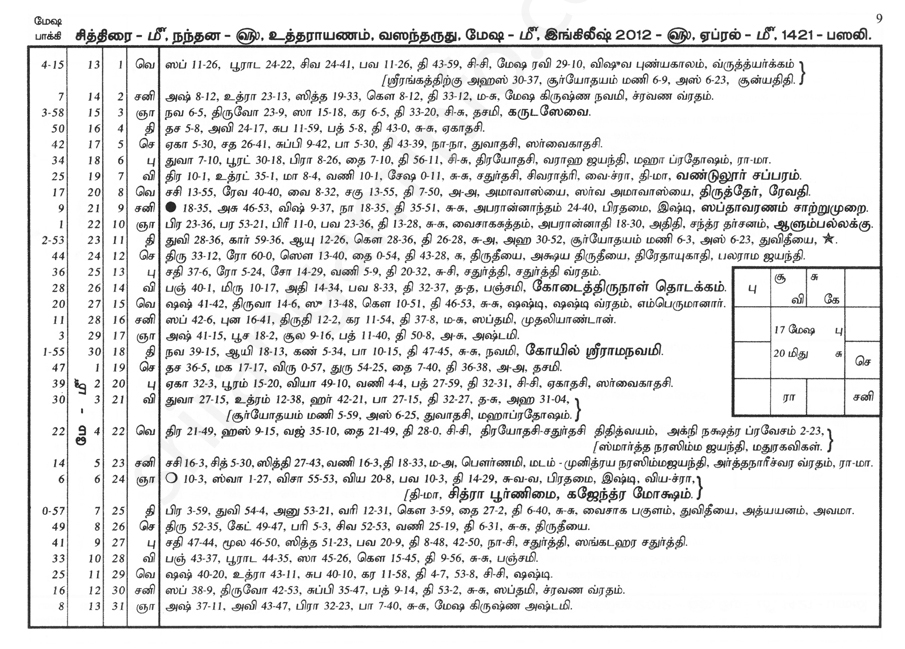 மேஷ
9
பாக்கி சித்திரை - மீ, நந்தன - ௵, உத்தராயணம், வஸந்தருது, மேஷ - மீ, இங்கிலீஷ் 2012 - ௵, ஏப்ரல் - மீ, 1421 - பஸலி.
4-15 13 1 வெ ஸப் 11-26, பூராட 24-22, சிவ 24-41, பவ 11-26, தி 43-59, சி-சி, மேஷ ரவி 29-10, விஷுவ புண்யகாலம், வ்ருத்த்யர்க்கம்
[ஸ்ரீரங்கத்திற்கு அஹஸ் 30-37, சூர்யோதயம் மணி 6-9, அஸ் 6-23, சூன்யதிதி.
7 14 2 சனி அஷ் 8-12, உத்ரா 23-13, ஸித்த 19-33, கௌ 8-12, தி 33-12, ம-சு, மேஷ கிருஷ்ண நவமி, ச்ரவண வ்ரதம்.
3-58 15 3 ஞா நவ 6-5, திருவோ 23-9, ஸா 15-18, கர 6-5, தி 33-20, சி-சு, தசமி, கருடஸேவை.
50 16 4 தி தச 5-8, அவி 24-17, சுப 11-59, பத் 5-8, தி 43-0, சு-சு, ஏகாதசி.
42 17 5 செ ஏகா 5-30, சத 26-41, சுப்பி 9-42, பா 5-30, தி 43-39, நா-நா, துவாதசி, ஸர்வைகாதசி.
34 18 6 பு துவா 7-10, பூரட் 30-18, பிரா 8-26, தை 7-10, தி 56-11, சி-சு, திரயோதசி, வராஹ ஜயந்தி, மஹா ப்ரதோஷம், ரா-மா.
25 19 7 வி திர 10-1, உத்ரட் 35-1, மா 8-4, வணி 10-1, சேஷ 0-11, சு-சு, சதுர்த்சி, சிவராத்ரி, வை-ச்ரா, தி-மா, வண்டுலூர் சப்பரம்.
17 20 8 வெ சசி 13-55, ரேவ 40-40, வை 8-32, சகு 13-55, தி 7-50, அ-அ, அமாவாஸ்யை, ஸர்வ அமாவாஸ்யை, திருத்தேர், ரேவதி.
9 21 9 சனி ● 18-35, அசு 46-53, விஷ் 9-37, நா 18-35, தி 35-51, சு-சு, அபரான்னாந்தம் 24-40, பிரதமை, இஷ்டி, ஸப்தாவரணம் சாற்றுமுறை.
1 22 10 ஞா பிர 23-36, பர 53-21, பிரீ 11-0, பவ 23-36, தி 13-28, சு-சு, வைசாகசுத்தம், அபரான்னாதி 18-30, அதிதி, சந்த்ர தர்சனம், ஆளும்பல்லக்கு.
2-53 23 11 தி துவி 28-36, கார் 59-36, ஆயு 12-26, கௌ 28-36, தி 26-28, சு-அ, அஹ 30-52, சூர்யோதயம் மணி 6-3, அஸ் 6-23, துவிதீயை, ★.
44 24 12 செ திரு 33-12, ரோ 60-0, ஸௌ 13-40, தை 0-54, தி 43-28, சு, திருதீயை, அக்ஷய திருதீயை, திரேதாயுகாதி, பலராம ஜயந்தி.
36 25 13 பு சதி 37-6, ரோ 5-24, சோ 14-29, வணி 5-9, தி 20-32, சு-சி, சதுர்த்தி, சதுர்த்தி வ்ரதம்.
28 26 14 வி பஞ் 40-1, மிரு 10-17, அதி 14-34, பவ 8-33, தி 32-37, த-த, பஞ்சமி, கோடைத்திருநாள் தொடக்கம்.
20 27 15 வெ ஷஷ் 41-42, திருவா 14-6, ஸு 13-48, கௌ 10-51, தி 46-53, சு-சு, ஷஷ்டி, ஷஷ்டி வ்ரதம், எம்பெருமானார்.
11 28 16 சனி ஸப் 42-6, புன 16-41, திருதி 12-2, கர 11-54, தி 37-8, ம-சு, ஸப்தமி, முதலியாண்டான்.
3 29 17 ஞா அஷ் 41-15, பூச 18-2, சூல 9-16, பத் 11-40, தி 50-8, அ-சு, அஷ்டமி.
1-55 30 18 தி நவ 39-15, ஆயி 18-13, கண் 5-34, பா 10-15, தி 47-45, சு-சு, நவமி, கோயில் ஸ்ரீராமநவமி.
47 1 19 செ தச 36-5, மக 17-17, விரு 0-57, துரு 54-25, தை 7-40, தி 36-38, அ-அ, தசமி.
39 2 20 பு ஏகா 32-3, பூரம் 15-20, வியா 49-10, வணி 4-4, பத் 27-59, தி 32-31, சி-சி, ஏகாதசி, ஸர்வைகாதசி.
30 3 21 வி துவா 27-15, உத்ரம் 12-38, ஹர் 42-21, பா 27-15, தி 32-27, த-சு, அஹ 31-04,
[சூர்யோதயம் மணி 5-59, அஸ் 6-25, துவாதசி, மஹாப்ரதோஷம்.
மே - மீ
22 4 22 வெ திர 21-49, ஹஸ் 9-15, வஜ் 35-10, தை 21-49, தி 28-0, சி-சி, திரயோதசி-சதுர்தசி திதித்வயம், அக்நி நக்ஷத்ர ப்ரவேசம் 2-23,
[ஸ்மார்த்த நரஸிம்ம ஜயந்தி, மதுரகவிகள்.
14 5 23 சனி சசி 16-3, சித் 5-30, ஸித்தி 27-43, வணி 16-3, தி 18-33, ம-அ, பௌர்ணமி, மடம் - முனித்ரய நரஸிம்மஜயந்தி, அர்த்தநாரீச்வர வ்ரதம், ரா-மா.
6 6 24 ஞா ○ 10-3, ஸ்வா 1-27, விசா 55-53, விய 20-8, பவ 10-3, தி 14-29, சு-வ-வ, பிரதமை, இஷ்டி, விய-ச்ரா,
[தி-மா, சித்ரா பூர்ணிமை, கஜேந்த்ர மோக்ஷம்.
0-57 7 25 தி பிர 3-59, துவி 54-4, அனு 53-21, வரி 12-31, கௌ 3-59, தை 27-2, தி 6-40, சு-சு, வைசாக பகுளம், துவிதீயை, அத்யயனம், அவமா.
49 8 26 செ திரு 52-35, கேட் 49-47, பரி 5-3, சிவ 52-53, வணி 25-19, தி 6-31, சு-சு, திருதீயை.
41 9 27 பு சதி 47-44, மூல 46-50, ஸித்த 51-23, பவ 20-9, தி 8-48, 42-50, நா-சி, சதுர்த்தி, ஸங்கடஹர சதுர்த்தி.
33 10 28 வி பஞ் 43-37, பூராட 44-35, ஸா 45-26, கௌ 15-45, தி 9-56, சு-சு, பஞ்சமி.
25 11 29 வெ ஷஷ் 40-20, உத்ரா 43-11, சுப 40-10, கர 11-58, தி 4-7, 53-8, சி-சி, ஷஷ்டி.
16 12 30 சனி ஸப் 38-9, திருவோ 42-53, சுப்பி 35-47, பத் 9-14, தி 53-2, சு-சு, ஸப்தமி, ச்ரவண வ்ரதம்.
8 13 31 ஞா அஷ் 37-11, அவி 43-47, பிரா 32-23, பா 7-40, சு-சு, மேஷ கிருஷ்ண அஷ்டமி.
பு
சூ சு
வி கே
17 மேஷ பு
20 மிது சு
செ
ரா
சனி